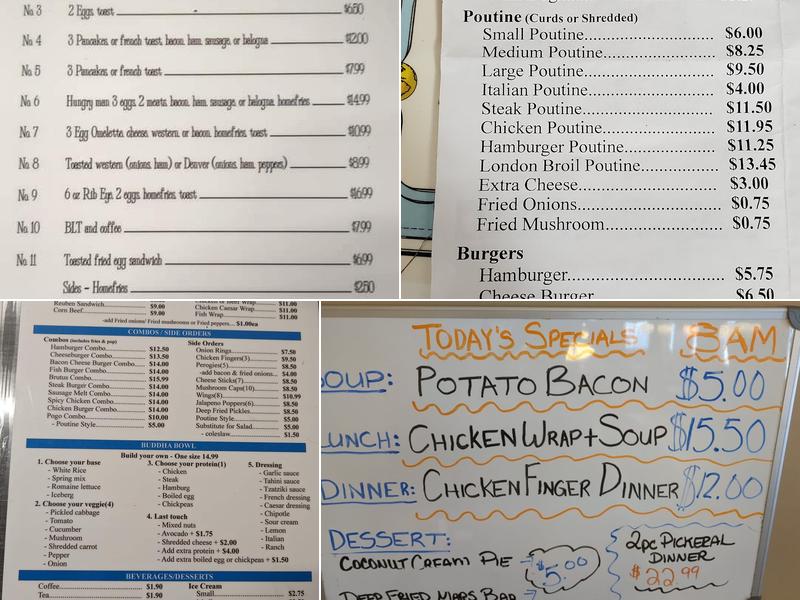 No. 3 2 Eggs toast $6.50
No. 4 3 Pancakes or french toast, bacon, ham, sausage, or bologna $12.00
No. 5 3 Pancakes or french toast $7.99
No. 6 Hungry man 3 eggs, 2 meats, bacon, ham, sausage, or bologna, homefries $14.99
No. 7 3 Egg Omelette, cheese, western, or bacon, homefries, toast $10.99
No. 8 Toasted western (onions, ham) or Denver (onions, ham, peppers) $8.99
No. 9 6 oz Rib Eye, 2 eggs, homefries, toast $16.99
No. 10 BLT and coffee $7.99
No. 11 Toasted fried egg sandwich $6.99
Sides - Homefries $2.50
Poutine (Curds or Shredded)
Small Poutine $6.00
Medium Poutine $8.25
Large Poutine $9.50
Italian Poutine $4.00
Steak Poutine $11.50
Chicken Poutine $11.95
Hamburger Poutine $11.25
London Broil Poutine $13.45
Extra Cheese $3.00
Fried Onions $0.75
Fried Mushroom $0.75
Burgers
Hamburger $5.75
Cheese Burger $6.50
Reuben Sandwich $9.00
Corn Beef $9.00
$11.00
Chicken Caesar Wrap $11.00
Fish Wrap $11.00
-add Fried onions/ Fried mushrooms or Fried peppers... $1.00ea
COMBOS / SIDE ORDERS
Combos (includes fries & pop)
Hamburger Combo $12.50
Cheeseburger Combo $13.50
Bacon Cheese Burger Combo $14.00
Fish Burger Combo $14.00
Brutus Combo $15.99
Steak Burger Combo $14.00
Sausage Melt Combo $14.00
Spicy Chicken Combo $14.00
Chicken Burger Combo $14.00
Pogo Combo $10.00
- Poutine Style $5.00
Side Orders
Onion Rings $7.50
Chicken Fingers(3) $9.50
Perogies(5) $8.50
-add bacon & fried onions $4.00
Cheese Sticks(7) $8.50
Mushroom Caps(10) $8.50
Wings(8) $10.99
Jalapeno Poppers(6) $8.50
Deep Fried Pickles $8.50
Poutine Style $5.00
Substitute for Salad $5.00
- coleslaw $1.50
BUDDHA BOWL
Build your own - One size 14.99
1. Choose your base
- White Rice
- Spring mix
- Romaine lettuce
- Iceberg
2. Choose your veggie(4)
- Pickled cabbage
- Tomato
- Cucumber
- Mushroom
- Shredded carrot
- Pepper
- Onion
3. Choose your protein(1)
- Chicken
- Steak
- Hamburg
- Boiled egg
- Chickpeas
4. Last touch
- Mixed nuts
- Avocado + $1.75
- Shredded cheese + $2.00
- Add extra protein + $4.00
- Add extra boiled egg or chickpeas + $1.50
5. Dressing
- Garlic sauce
- Tahini sauce
- Tzatziki sauce
- French dressing
- Caesar dressing
- Chipotle
- Sour cream
- Lemon
- Italian
- Ranch
BEVERAGES/DESSERTS
Coffee $1.90
Tea $1.90
Ice Cream
Small $2.75
TODAY'S SPECIALS 8AM
SOUP: POTATO BACON $5.00
LUNCH: CHICKEN WRAP + SOUP $15.50
DINNER: CHICKEN FINGER DINNER $12.00
DESSERT:
COCONUT CREAM PIE → $5.00
DEEP FRIED MARS BAR
2pc PICKERAL
DINNER
$22.99